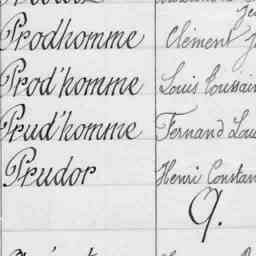 Prodhomme Clément
Prod'homme Louis Toussain
Prud'homme Fernand Lou
Prudor Henri Constan
Q.